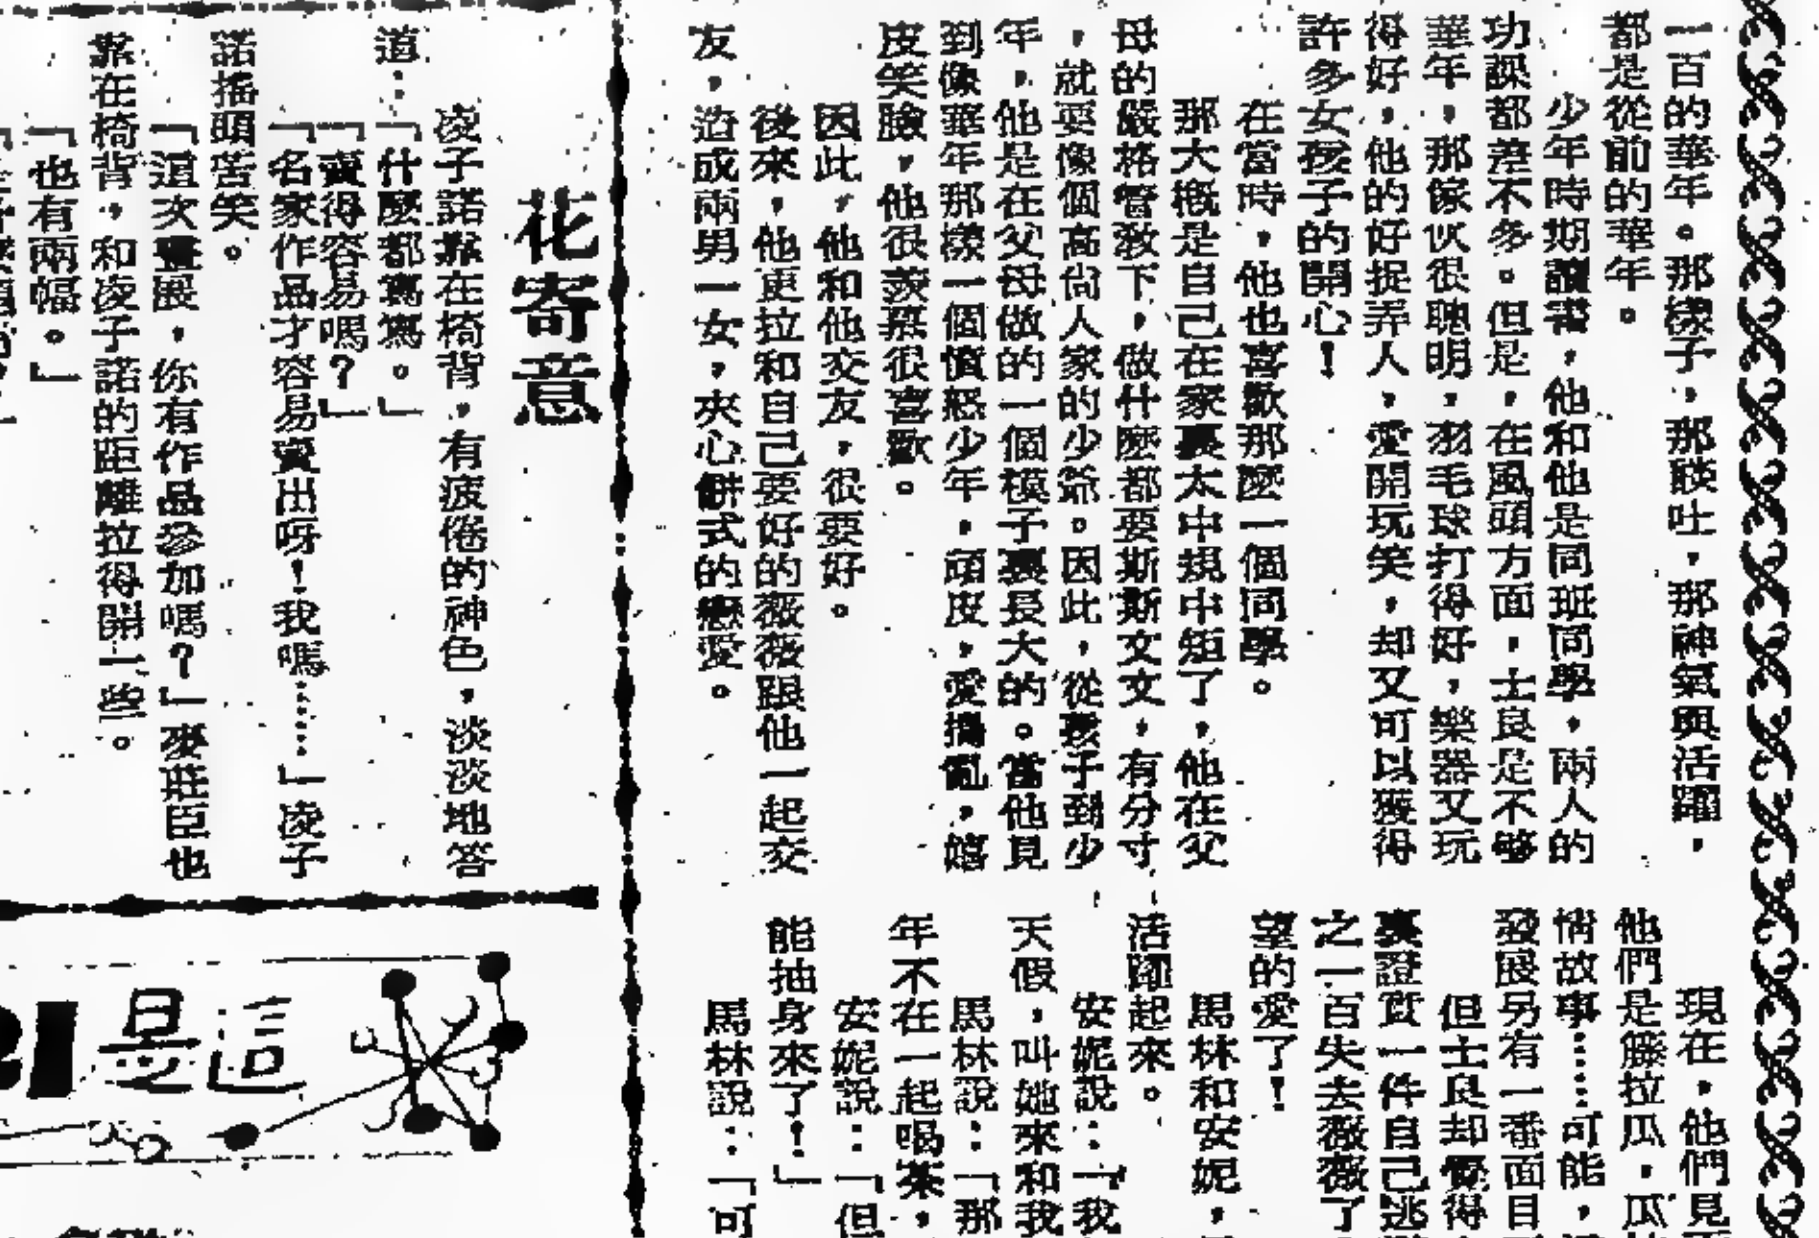 一百的華年。那樣子，那談吐，那神氣與活躍，
都是從前的華年。
少年時期讀書，他和他是同班同學，兩人的
功課都差不多。但是，在風頭方面，士良是不够
華年，那傢伙很聰明，羽毛球打得好，樂器又玩
得好，他的好捉弄人，愛開玩笑，却又可以獲得
許多女孩子的開心！
在當時，他也喜歡那麼一個同學。
那大概是自己在家裏太中規中矩了，他在父
母的嚴格管敎下，做什麽都要斯斯文文，有分寸
，就要像個高尙人家的少爺。因此，從孩子到少
年，他是在父母做的一個模子裏長大的。當他見
到像華年那樣一個憤怒少年，頑皮，愛搗亂，嬉
皮笑臉，他很羨慕很喜歡。
因此，他和他交友，很要好。
後來，他更拉和自己要好的薇薇跟他一起交
友，造成兩男一女，夾心餅式的戀愛。
現在，他們見
他們是籐拉瓜，瓜
情故事……可能，
發展另有一番面目
但士良却覺得
裏證實一件自己逃
之一百失去薇薇了
望的愛了！
馬林和安妮，
活躍起來。
安妮說：「我
天假，叫她來和我
馬林說：「那
年不在一起喝茶，
安妮說：「但
能抽身來了！」
馬林說：「可
花寄意
凌子諾靠在椅背，有疲倦的神色，淡淡地答
道：「什麽都寫寫。」
「賣得容易嗎？」
「名家作品才容易賣出呀！我嗎……」凌子
諾搖頭苦笑。
「這次畫展，你有作品參加嗎？」麥莊臣也
靠在椅背，和凌子諾的距離拉得開一些。
「也有兩幅。」
這是